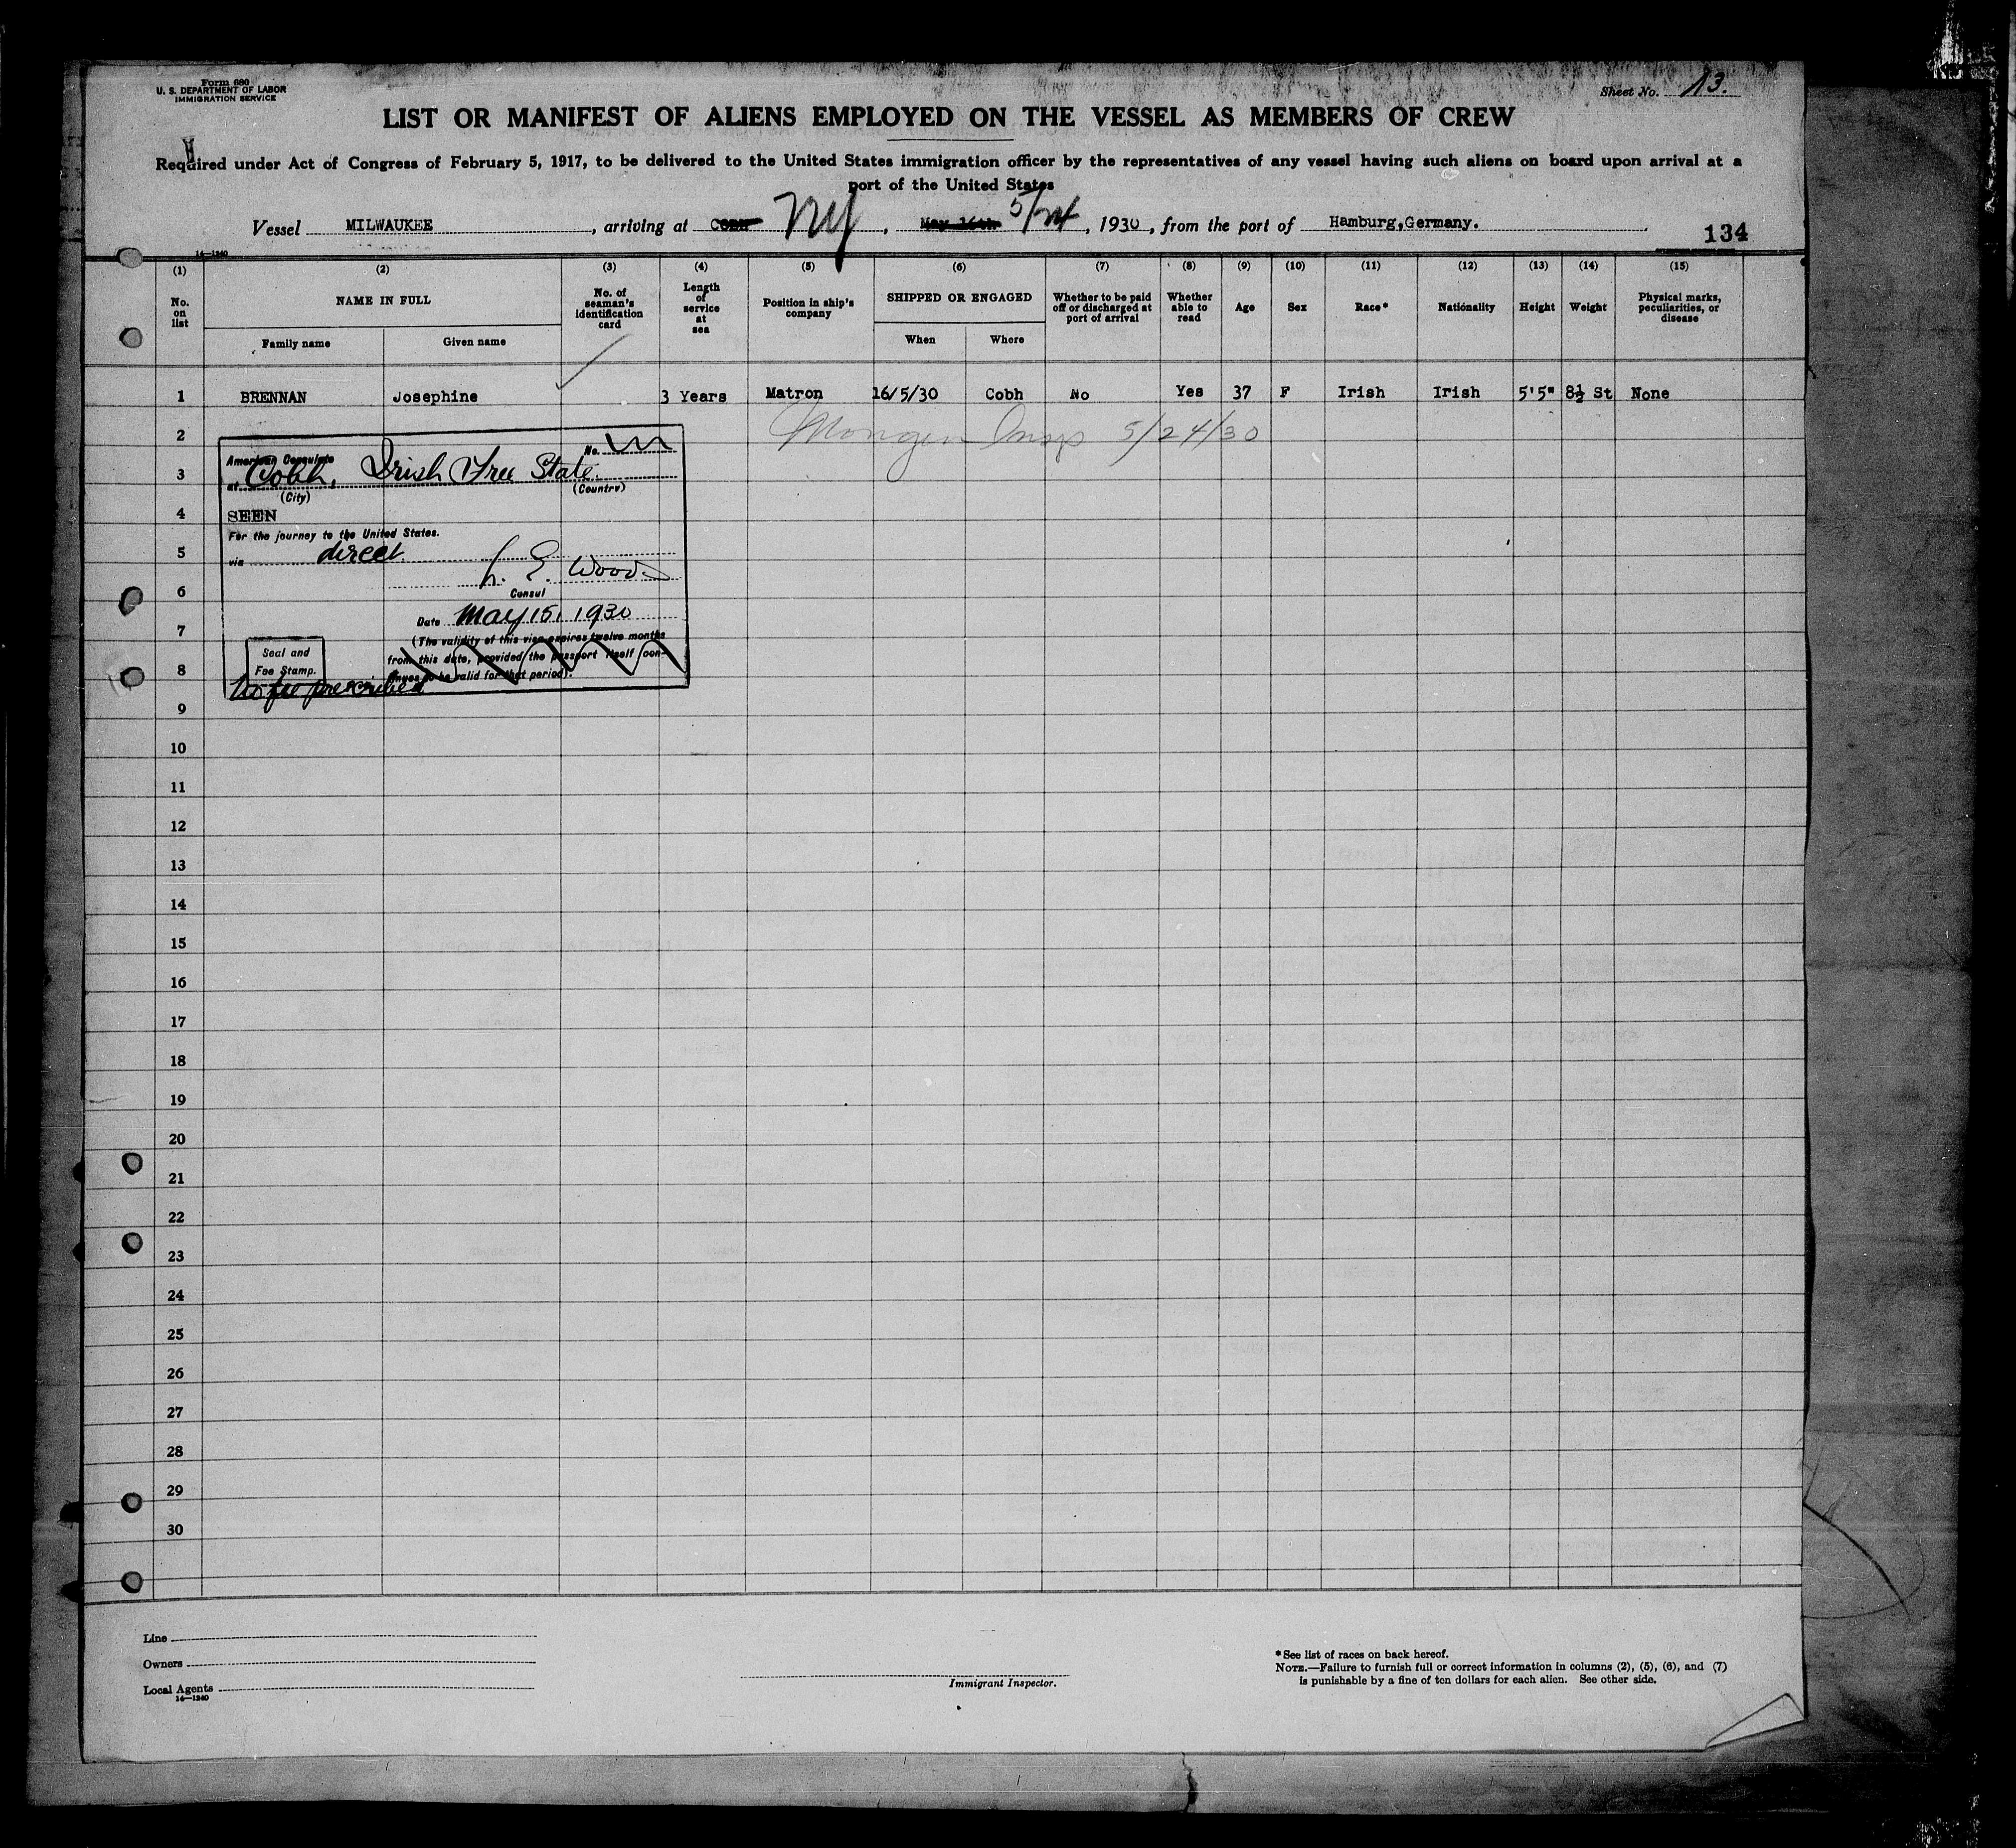 Form 680
U. S. DEPARTMENT OF LABOR
IMMIGRATION SERVICE
Sheet No. 13.
LIST OR MANIFEST OF ALIENS EMPLOYED ON THE VESSEL AS MEMBERS OF CREW
Required under Act of Congress of February 5, 1917, to be delivered to the United States immigration officer by the representatives of any vessel having such aliens on board upon arrival at a
port of the United States
Vessel MILWAUKEE, arriving at Cobh NY, May 16th 5/24, 1930, from the port of Hamburg,Germany.
134
14—1240
(1) (2) (3) (4) (5) (6) (7) (8) (9) (10) (11) (12) (13) (14) (15)
No. on list
NAME IN FULL
Family name
Given name
No. of seaman's identification card
Length of service at sea
Position in ship's company
SHIPPED OR ENGAGED
When
Where
Whether to be paid off or discharged at port of arrival
Whether able to read
Age
Sex
Race*
Nationality
Height
Weight
Physical marks, peculiarities, or disease
1 BRENNAN Josephine 3 Years Matron 16/5/30 Cobh No Yes 37 F Irish Irish 5'5" 8½ St None
2
Insp 5/24/30
American Consulate No.
3
at Cobh, Irish Free State
(City) (Country)
4
SEEN
For the journey to the United States.
5
via direct
Wood
6
Consul
Date May 15, 1930
7
(The validity of this visa expires twelve months
from this date, provided the passport itself con-
tinues to be valid for that period).
Seal and
Fee Stamp.
8
No fee prescribed
9
10
11
12
13
14
15
16
17
18
19
20
21
22
23
24
25
26
27
28
29
30
Line
Owners
Local Agents
14—1240
Immigrant Inspector.
*See list of races on back hereof.
NOTE.—Failure to furnish full or correct information in columns (2), (5), (6), and (7)
is punishable by a fine of ten dollars for each alien. See other side.